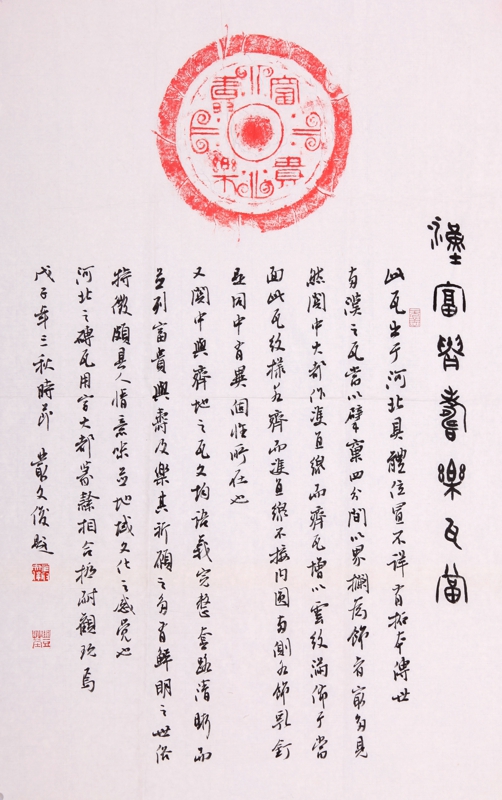 富貴
壽樂
漢富貴壽樂瓦當
此瓦出于河北具體位置不詳有拓本傳世
有漢之瓦當以擘窠四分間以界欄為飾者最多見
然關中大都作雙直線而齊瓦增以雲紋滿佈于當
面此瓦紋樣若齊而雙直線不接内圓兩側為飾乳釘
是同中有異個性所在也
又關中與齊地之瓦文均語義完整套路清晰而
並列富貴與壽及樂其祈願之多有鮮明之世俗
特徵頗具人情意味並地域文化之感覺也
河北之磚瓦用字大都篆隸相合極耐觀玩焉
戊子年三秋時節 叢文俊題